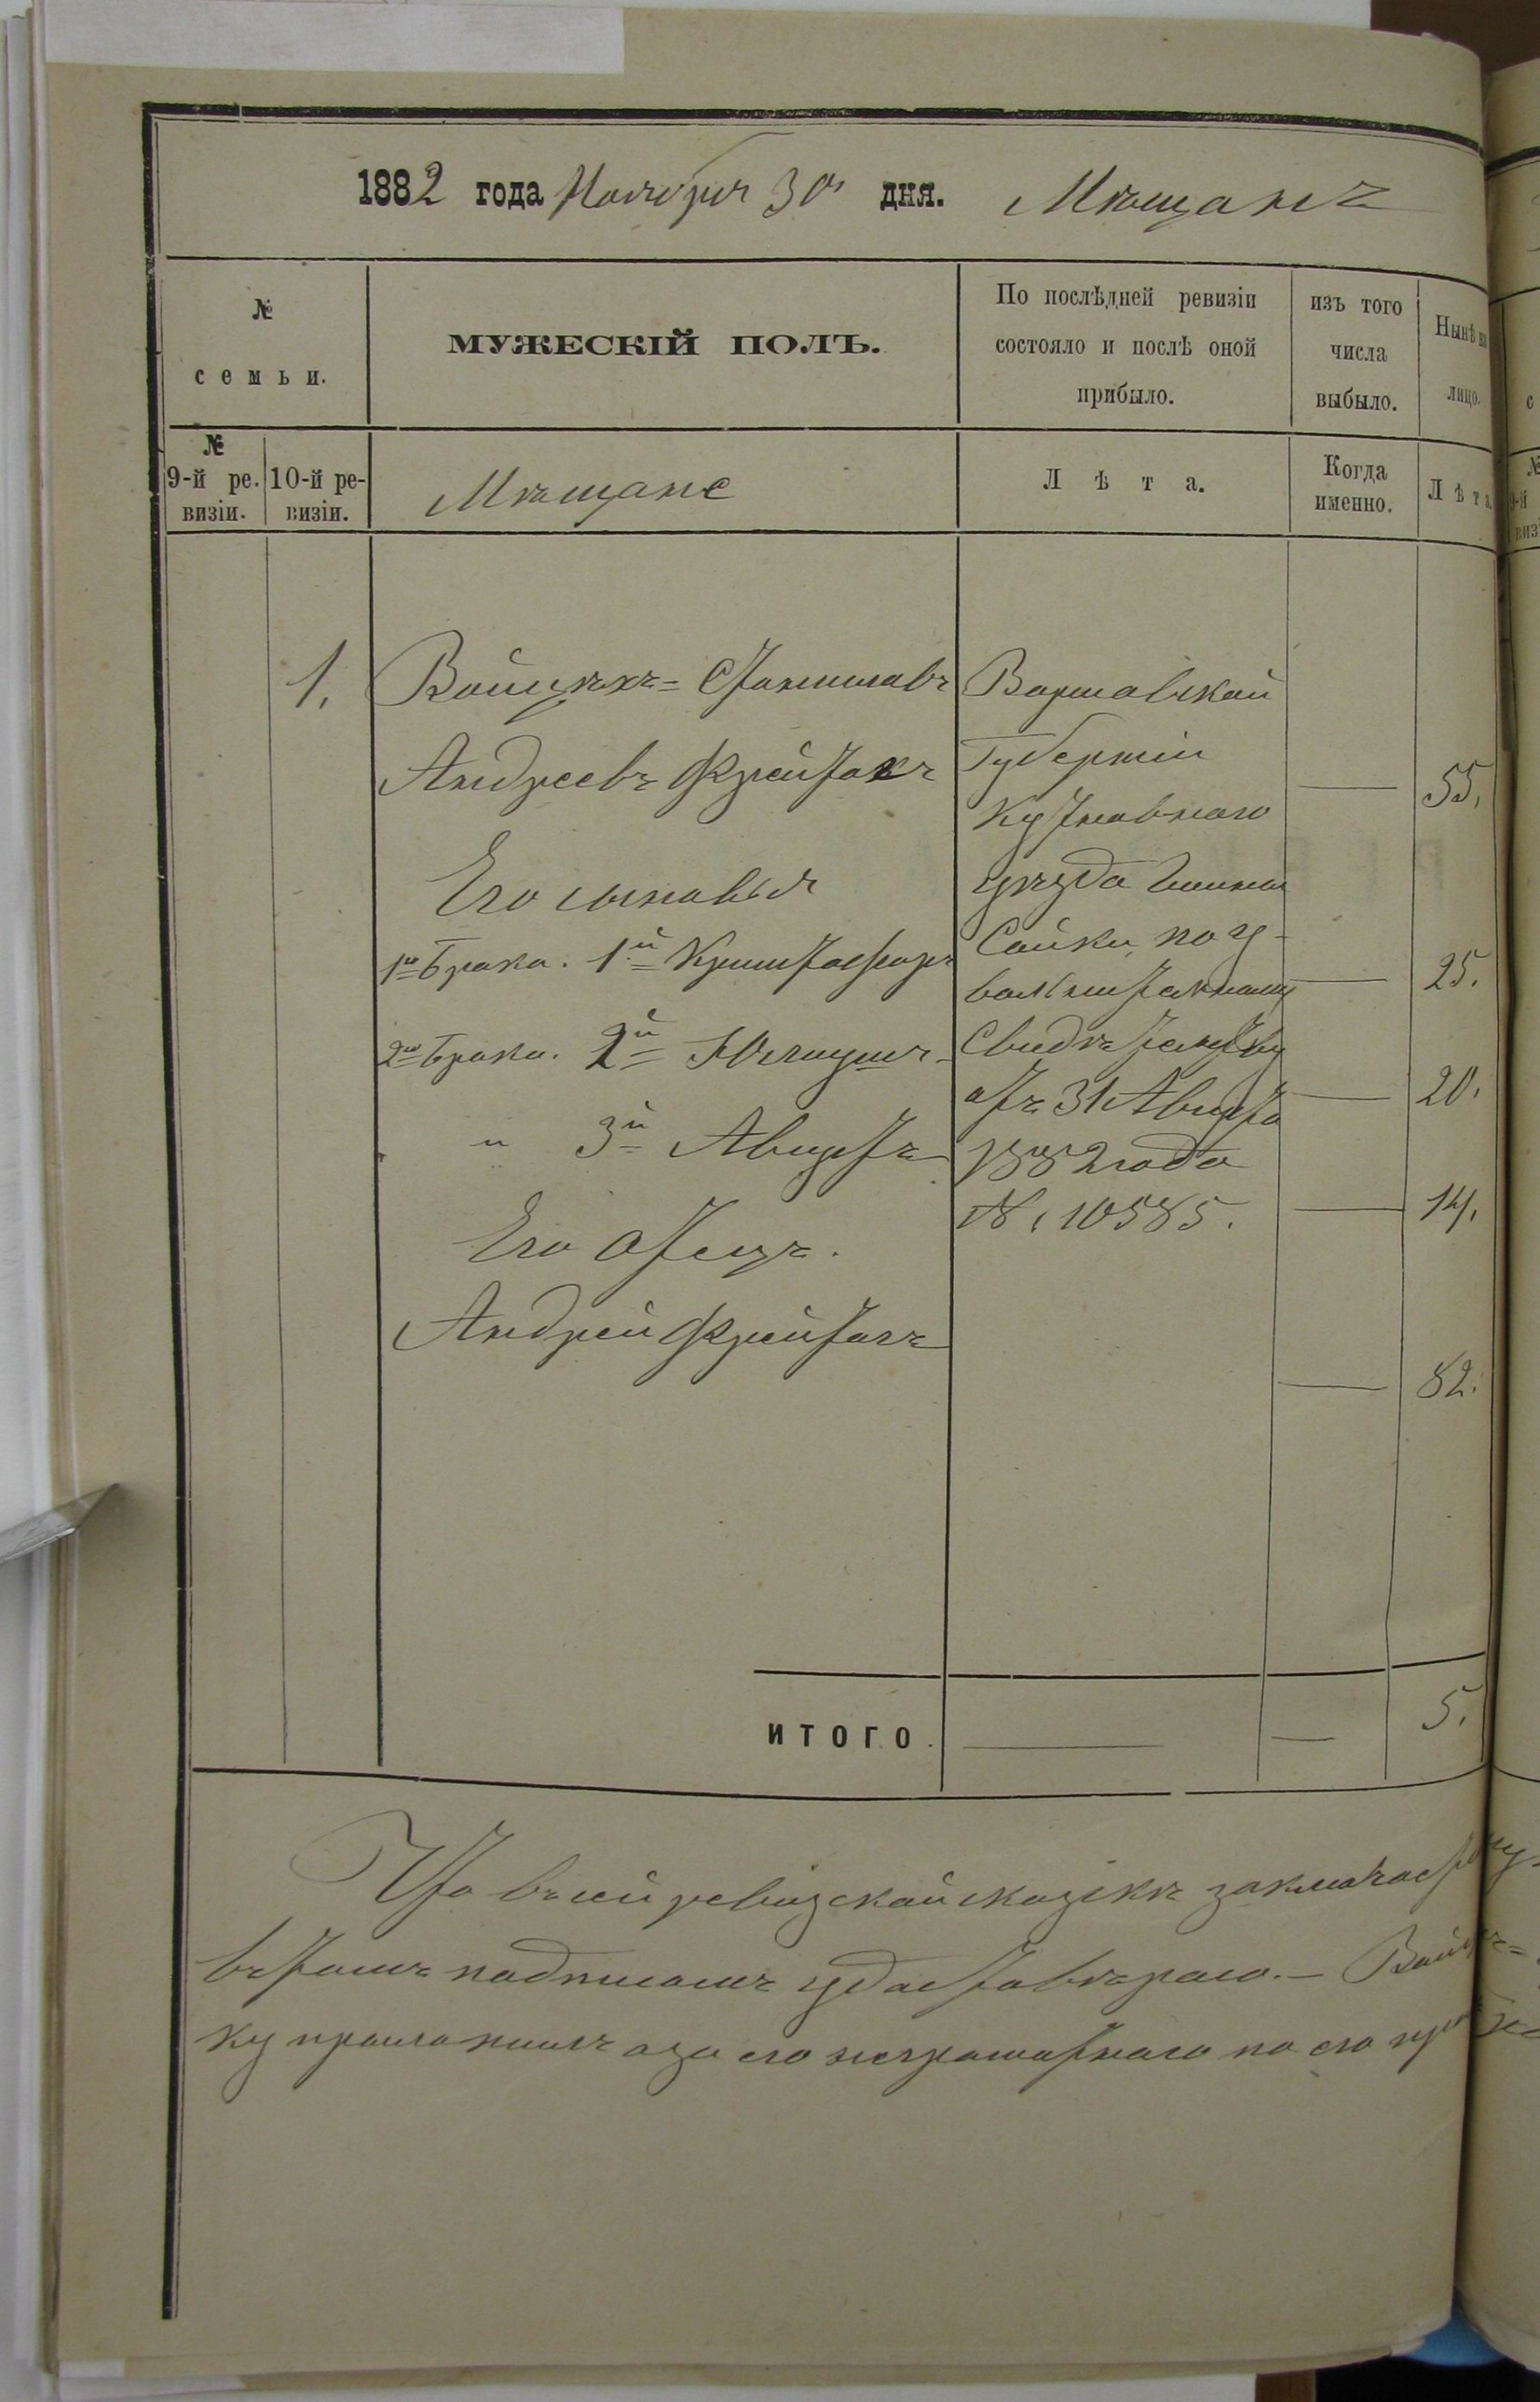 1882 года Ноября 30 дня. Мѣщанъ
№ семьи.
МУЖЕСКІЙ ПОЛЪ.
По послѣдней ревизіи состояло и послѣ оной прибыло.
изъ того числа выбыло.
Нынѣ на лицо.
№ 9-й ре. визіи.
10-й ре- визіи.
Мѣщане
Лѣта.
Когда именно.
Лѣта.
1. Войцѣхъ= Станиславъ
Андреевъ Фрейтакъ
55.
Его сыновья
1го Брака. 1й Криштофоръ
25.
2го Брака. 2й Юліушъ
20.
" 3й Августъ
14.
Его Отецъ.
Андрей Фрейтагъ
82.
Варшавской
Губерніи
Кутновскаго
уѣзда Гмина
Сойки, по у-
вольнительному
Свидѣтельству
отъ 31 Августа
1882 года
№ 10585.
ИТОГО.
5.
Что въ сей ревизской сказкѣ заключается
въ томъ подписомъ удостовѣряю.— Войцѣ=
ку а за его неграмотнаго по его